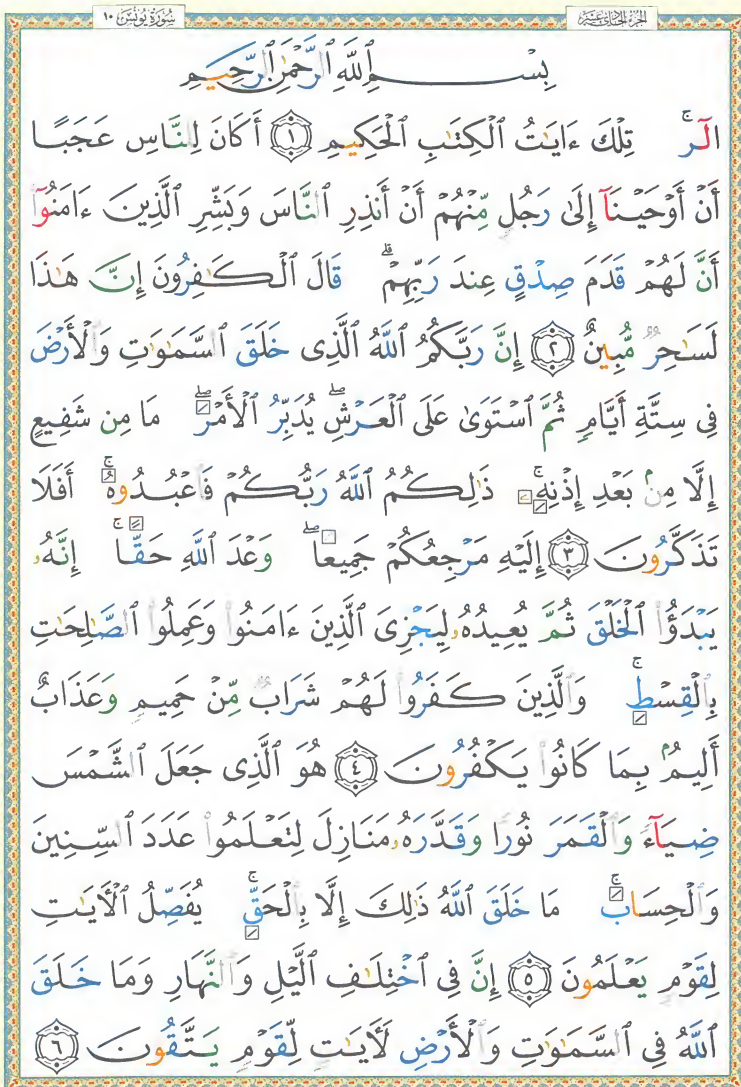 الجزء الحادي عشر سورة يونس ١٠
بِسْمِ ٱللَّهِ ٱلرَّحْمَٰنِ ٱلرَّحِيمِ
الٓرۚ تِلْكَ ءَايَٰتُ ٱلْكِتَٰبِ ٱلْحَكِيمِ ١ أَكَانَ لِلنَّاسِ عَجَبًا
أَنْ أَوْحَيْنَآ إِلَىٰ رَجُلٍ مِّنْهُمْ أَنْ أَنذِرِ ٱلنَّاسَ وَبَشِّرِ ٱلَّذِينَ ءَامَنُوٓا۟
أَنَّ لَهُمْ قَدَمَ صِدْقٍ عِندَ رَبِّهِمْۗ قَالَ ٱلْكَٰفِرُونَ إِنَّ هَٰذَا
لَسَٰحِرٌ مُّبِينٌ ٢ إِنَّ رَبَّكُمُ ٱللَّهُ ٱلَّذِى خَلَقَ ٱلسَّمَٰوَٰتِ وَٱلْأَرْضَ
فِى سِتَّةِ أَيَّامٍ ثُمَّ ٱسْتَوَىٰ عَلَى ٱلْعَرْشِۖ يُدَبِّرُ ٱلْأَمْرَۖ مَا مِن شَفِيعٍ
إِلَّا مِنۢ بَعْدِ إِذْنِهِۦۚ ذَٰلِكُمُ ٱللَّهُ رَبُّكُمْ فَٱعْبُدُوهُۚ أَفَلَا
تَذَكَّرُونَ ٣ إِلَيْهِ مَرْجِعُكُمْ جَمِيعًاۖ وَعْدَ ٱللَّهِ حَقًّاۚ إِنَّهُۥ
يَبْدَؤُا۟ ٱلْخَلْقَ ثُمَّ يُعِيدُهُۥ لِيَجْزِىَ ٱلَّذِينَ ءَامَنُوا۟ وَعَمِلُوا۟ ٱلصَّٰلِحَٰتِ
بِٱلْقِسْطِۚ وَٱلَّذِينَ كَفَرُوا۟ لَهُمْ شَرَابٌ مِّنْ حَمِيمٍ وَعَذَابٌ
أَلِيمٌۢ بِمَا كَانُوا۟ يَكْفُرُونَ ٤ هُوَ ٱلَّذِى جَعَلَ ٱلشَّمْسَ
ضِيَآءً وَٱلْقَمَرَ نُورًا وَقَدَّرَهُۥ مَنَازِلَ لِتَعْلَمُوا۟ عَدَدَ ٱلسِّنِينَ
وَٱلْحِسَابَۚ مَا خَلَقَ ٱللَّهُ ذَٰلِكَ إِلَّا بِٱلْحَقِّۚ يُفَصِّلُ ٱلْأَيَٰتِ
لِقَوْمٍ يَعْلَمُونَ ٥ إِنَّ فِى ٱخْتِلَٰفِ ٱلَّيْلِ وَٱلنَّهَارِ وَمَا خَلَقَ
ٱللَّهُ فِى ٱلسَّمَٰوَٰتِ وَٱلْأَرْضِ لَأَيَٰتٍ لِّقَوْمٍ يَتَّقُونَ ٦